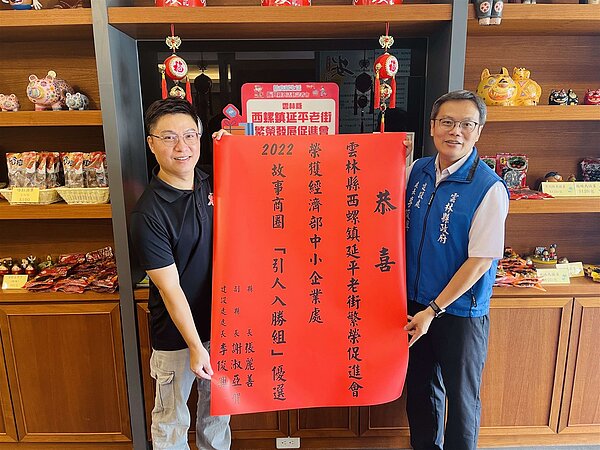 雲林縣
西螺鎮延平老街
繁榮發展促進會
恭喜
雲林縣西螺鎮延平老街繁榮促進會
榮獲經濟部中小企業處
2022
故事商圈「引人入勝組」優選
縣長張麗善
副縣長謝淑亞
建設處處長李俊興
雲林縣政府